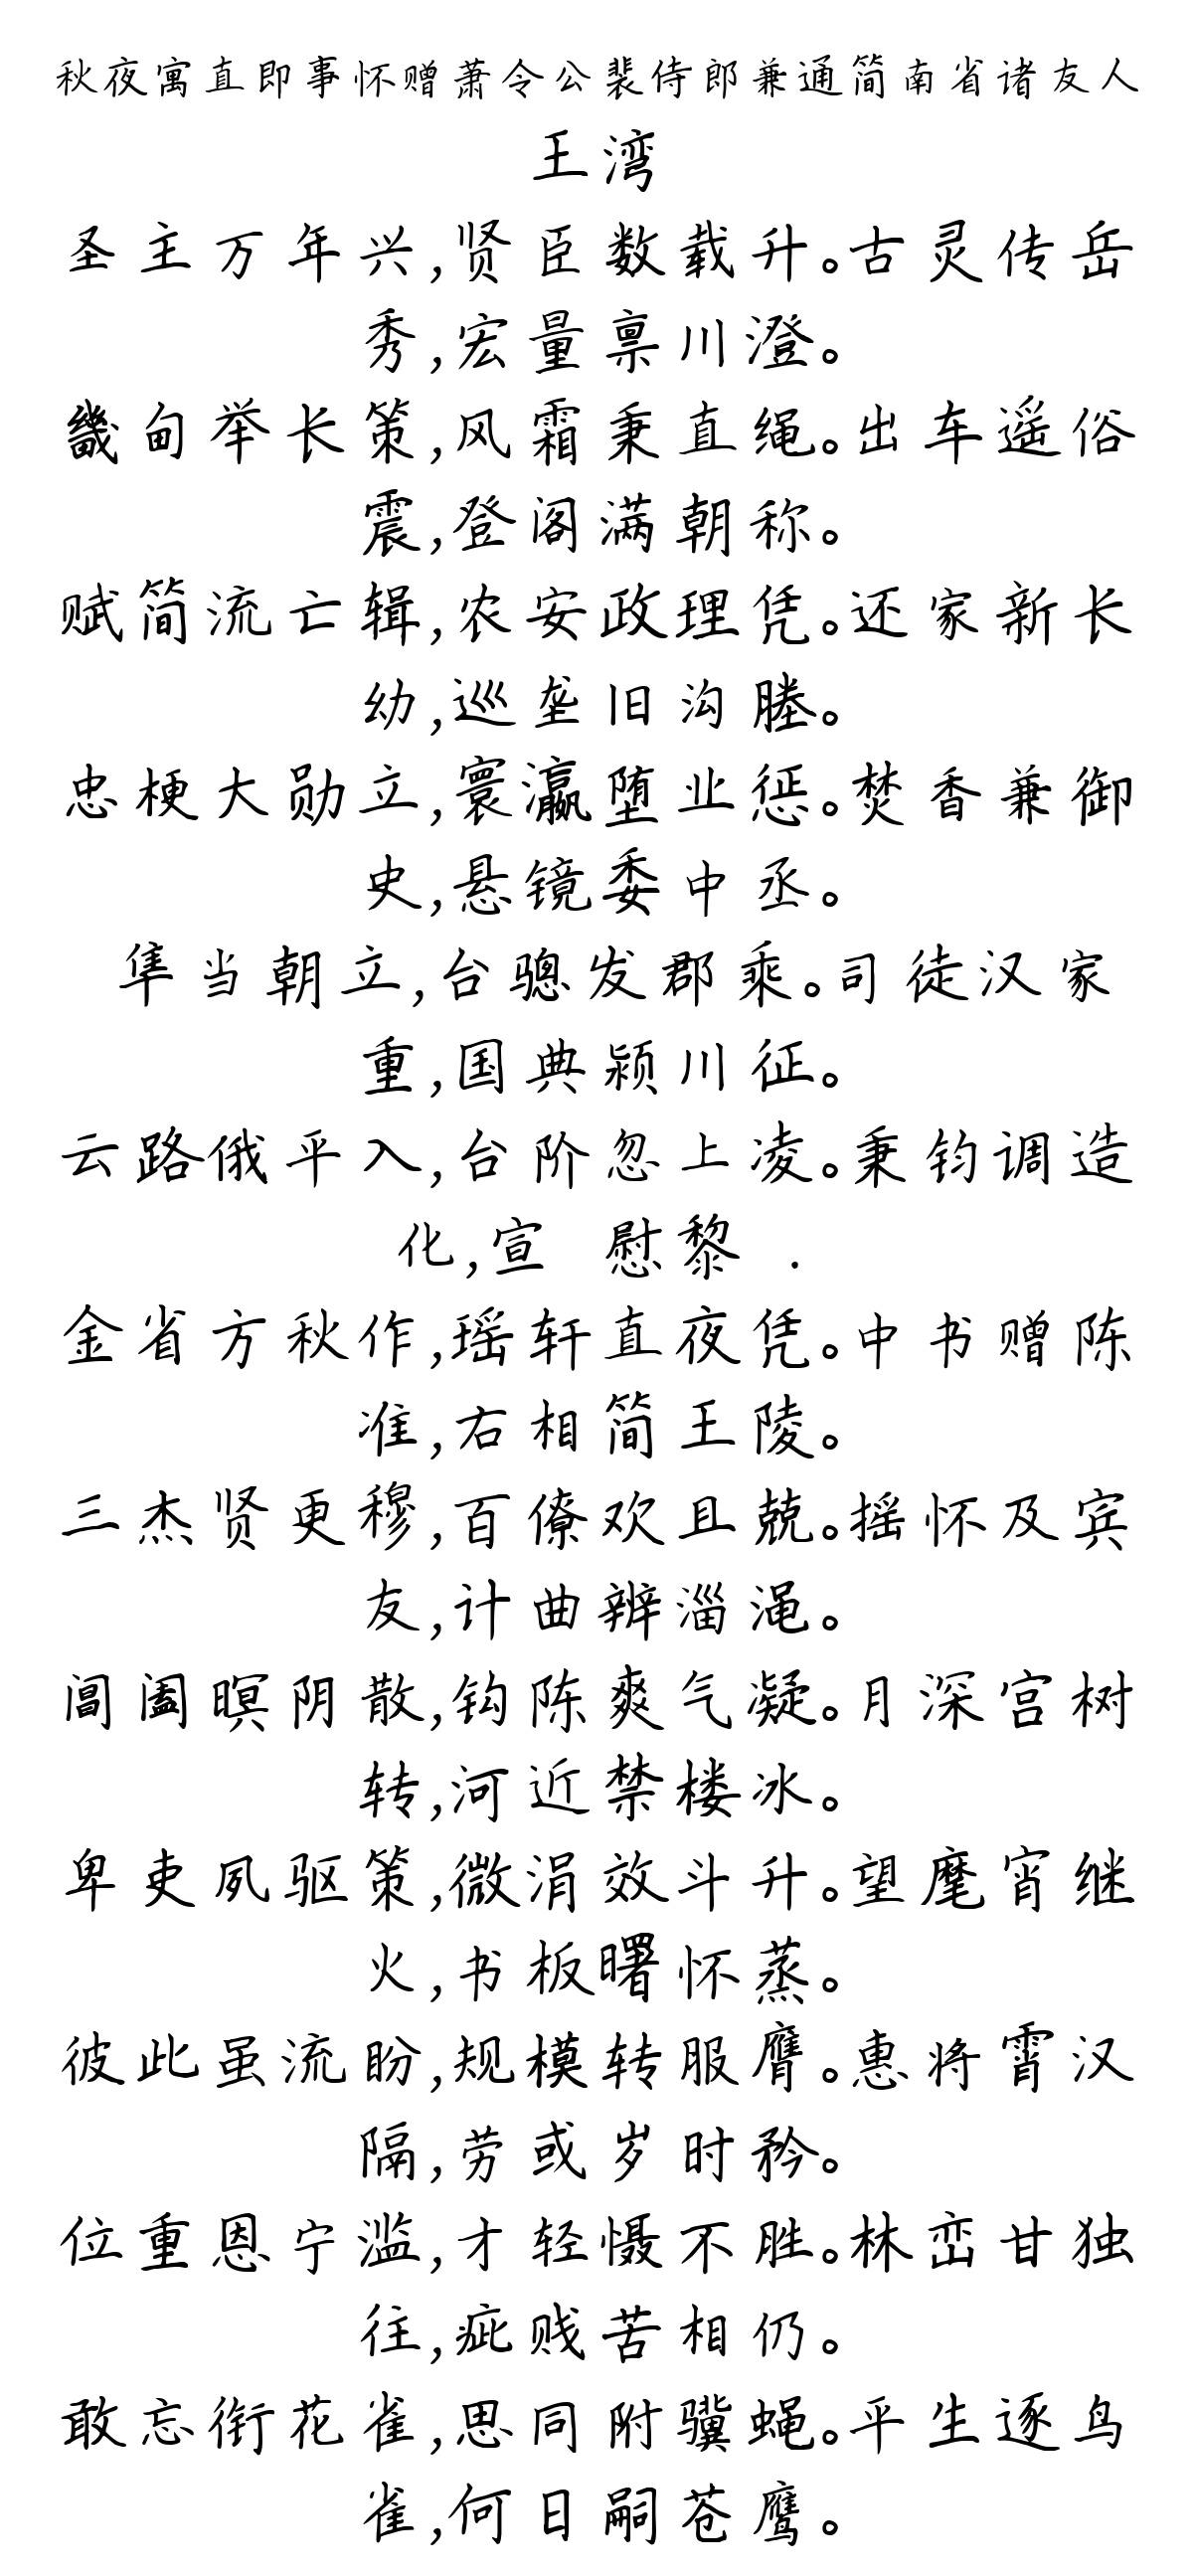 秋夜寓直即事怀赠萧令公裴侍郎兼通简南省诸友人
王湾
圣主万年兴,贤臣数载升。古灵传岳
秀,宏量禀川澄。
畿甸举长策,风霜秉直绳。出车遥俗
震,登阁满朝称。
赋简流亡辑,农安政理凭。还家新长
幼,巡垄旧沟塍。
忠梗大勋立,寰瀛堕业惩。焚香兼御
史,悬镜委中丞。
隼当朝立,台骢发郡乘。司徒汉家
重,国典颍川征。
云路俄平入,台阶忽上凌。秉钧调造
化,宣 慰黎 .
金省方秋作,瑶轩直夜凭。中书赠陈
准,右相简王陵。
三杰贤更穆,百僚欢且兢。摇怀及宾
友,计曲辨淄渑。
阊阖暝阴散,钩陈爽气凝。月深宫树
转,河近禁楼冰。
卑吏夙驱策,微涓效斗升。望麾宵继
火,书板曙怀蒸。
彼此虽流盼,规模转服膺。惠将霄汉
隔,劳或岁时矜。
位重恩宁滥,才轻慑不胜。林峦甘独
往,疵贱苦相仍。
敢忘衔花雀,思同附骥蝇。平生逐鸟
雀,何日嗣苍鹰。